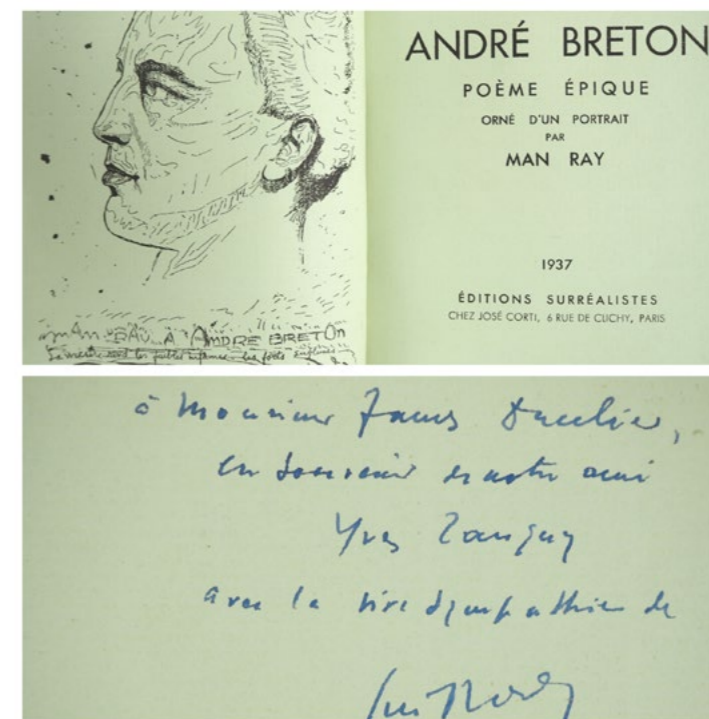 ANDRÉ BRETON
POÈME ÉPIQUE
ORNÉ D'UN PORTRAIT
PAR
MAN RAY
1937
ÉDITIONS SURRÉALISTES
CHEZ JOSÉ CORTI, 6 RUE DE CLICHY, PARIS
MAN RAY A ANDRE BRETON
à Monsieur
en souvenir de notre ami
Yves Tanguy
avec la vive sympathie de